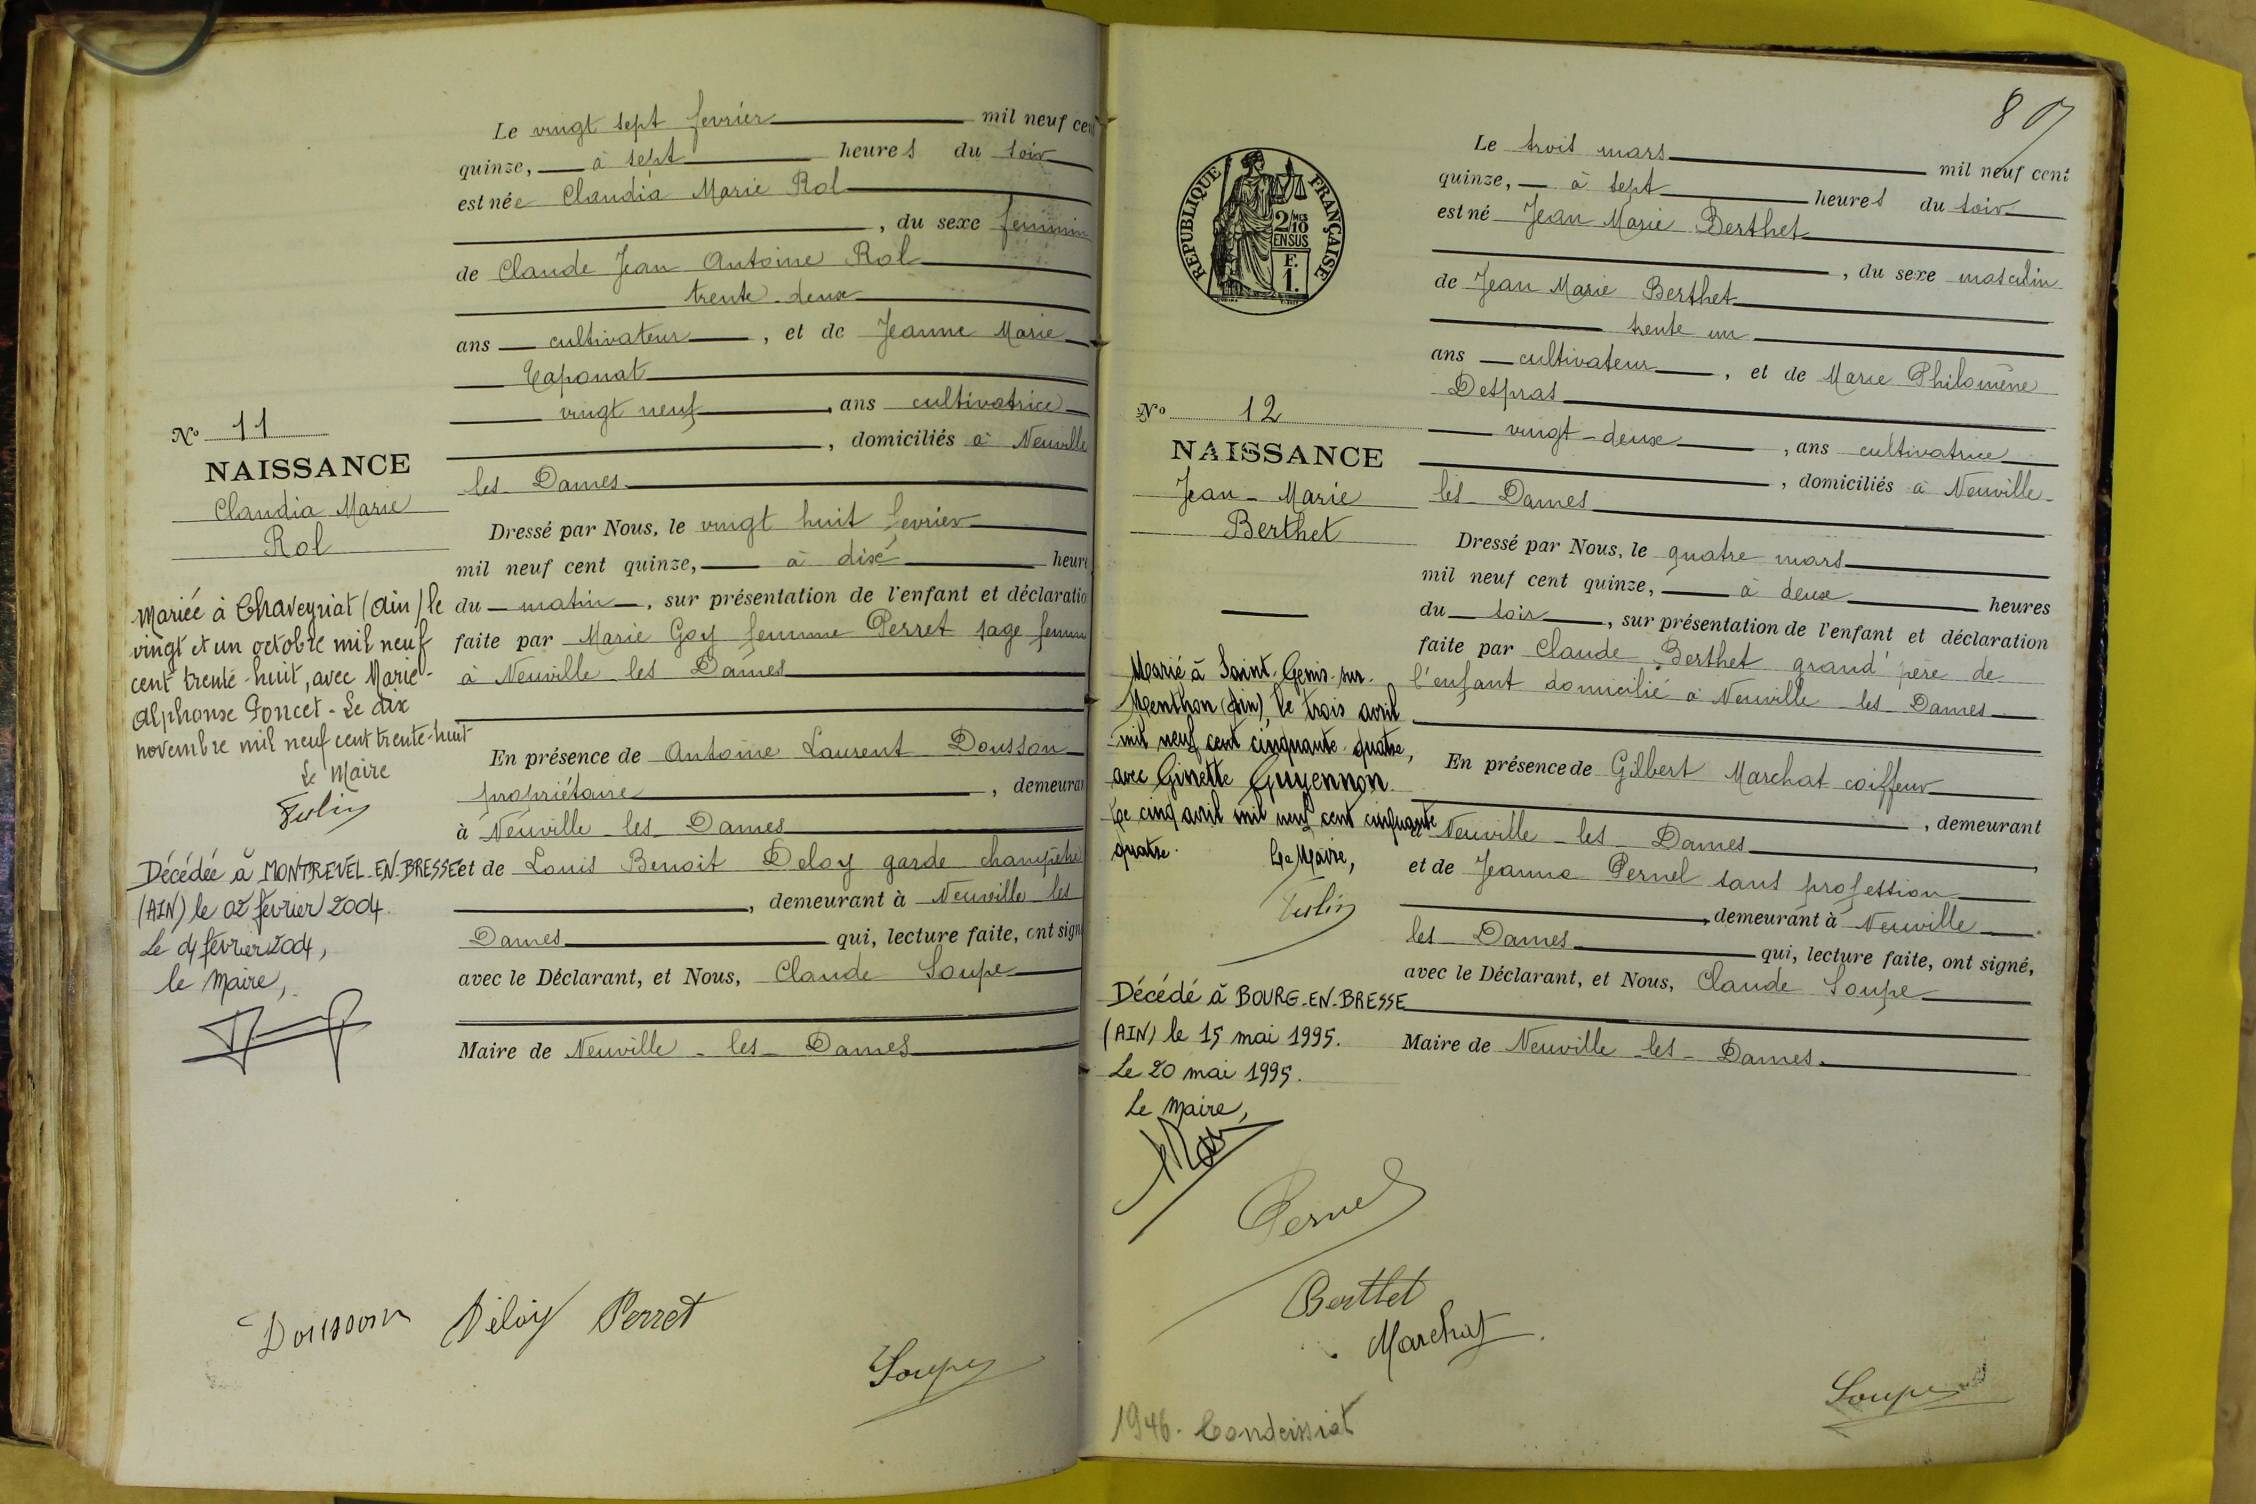 Le vingt sept fevrier mil neuf cent
quinze, à sept heures du soir
est née Claudia Marie Rol
, du sexe feminin
de Claude Jean Antoine Rol
trente-deux
ans cultivateur, et de Jeanne Marie
Taponat
vingt neuf, ans cultivatrice
, domiciliés à Neuville
les Dames
Dressé par Nous, le vingt huit fevrier
mil neuf cent quinze, à dix heure
du matin, sur présentation de l'enfant et déclaratio
faite par Marie Goy femme Perret sage femme
à Neuville les Dames
En présence de Antoine Laurent Dousson
propriétaire, demeuran
à Neuville les Dames
et de Louis Benoit Deloy garde champêtre
, demeurant à Neuville les
Dames qui, lecture faite, ont sign
avec le Déclarant, et Nous, Claude Soupe
Maire de Neuville-les-Dames
No 11
NAISSANCE
Claudia Marie
Rol
Mariée à Chaveyriat (Ain) le
vingt et un octobre mil neuf
cent trente-huit, avec Marie-
Alphonse Poncet - Le dix
novembre mil neuf cent trente-huit
Le Maire
Décédée à MONTREVEL-EN-BRESSE
(AIN) le 02 février 2004.
Le 04 février 2004,
le Maire,
Dousson Deloy Perret
Soupe
80
REPUBLIQUE FRANÇAISE
2/10 MES
EN SUS
F.
1.
Le trois mars mil neuf cent
quinze, à sept heures du soir
est né Jean Marie Berthet
, du sexe masculin
de Jean Marie Berthet
trente un
ans cultivateur, et de Marie Philomène
Despras
vingt-deux, ans cultivatrice
, domiciliés à Neuville-
les Dames
Dressé par Nous, le quatre mars
mil neuf cent quinze, à deux heures
du soir, sur présentation de l'enfant et déclaration
faite par Claude Berthet grand'père de
l'enfant domicilié à Neuville les Dames
En présence de Gilbert Marchat coiffeur
, demeurant
à Neuville les Dames
et de Jeanne Pernel sans profession
, demeurant à Neuville
les Dames qui, lecture faite, ont signé,
avec le Déclarant, et Nous, Claude Soupe
Maire de Neuville-les-Dames.
No 12
NAISSANCE
Jean-Marie
Berthet
Marié à Saint-Genis-sur-
Menthon (Ain), le trois avril
mil neuf cent cinquante-quatre,
avec Ginette Guyennon.
Le cinq avril mil neuf cent cinquante
quatre.
Le Maire,
Décédé à BOURG-EN-BRESSE
(AIN) le 15 mai 1995.
Le 20 mai 1995.
Le Maire,
Pernel
Berthet
Marchat
Soupe
1946. Condeissiat